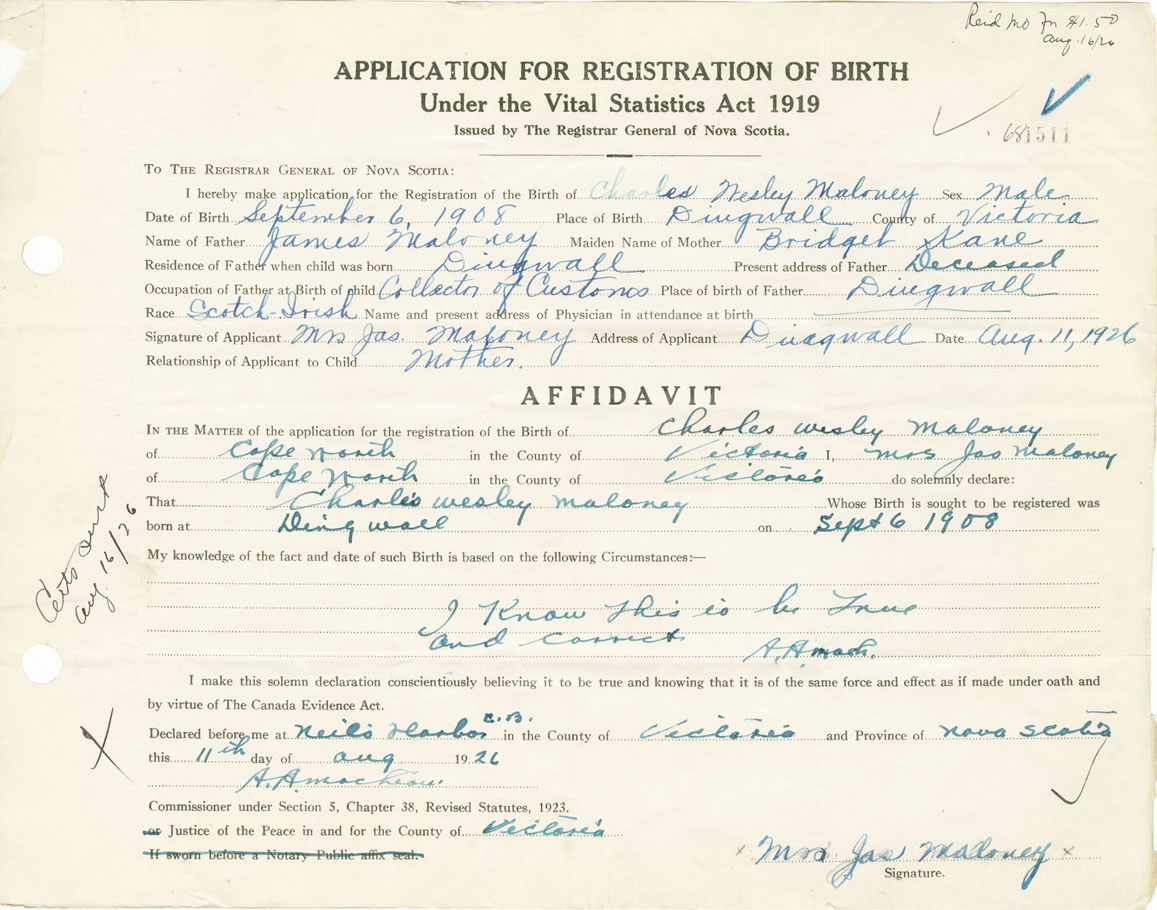 Reid Mo Fn $1.50
Aug. 16/26
APPLICATION FOR REGISTRATION OF BIRTH
Under the Vital Statistics Act 1919
Issued by The Registrar General of Nova Scotia.
681511
TO THE REGISTRAR GENERAL OF NOVA SCOTIA:
I hereby make application for the Registration of the Birth of Charles Wesley Maloney Sex Male
Date of Birth September 6, 1908 Place of Birth Dingwall County of Victoria
Name of Father James Maloney Maiden Name of Mother Bridget Kane
Residence of Father when child was born Dingwall Present address of Father Deceased
Occupation of Father at Birth of child Collector of Customs Place of birth of Father Dingwall
Race Scotch-Irish Name and present address of Physician in attendance at birth
Signature of Applicant Mrs Jas. Maloney Address of Applicant Dingwall Date Aug. 11, 1926
Relationship of Applicant to Child Mother.
AFFIDAVIT
IN THE MATTER of the application for the registration of the Birth of Charles Wesley Maloney
of Cape North in the County of Victoria I, Mrs Jas Maloney
of Cape North in the County of Victoria do solemnly declare:
That Charles Wesley Maloney Whose Birth is sought to be registered was
born at Dingwall on Sept 6 1908
My knowledge of the fact and date of such Birth is based on the following Circumstances:—
I Know This is be True
and correct
Aug 16/26
I make this solemn declaration conscientiously believing it to be true and knowing that it is of the same force and effect as if made under oath and
by virtue of The Canada Evidence Act.
Declared before me at Neil's Harbor C.B. in the County of Victoria and Province of Nova Scotia
this 11th day of Aug 1926
Commissioner under Section 5, Chapter 38, Revised Statutes, 1923.
or Justice of the Peace in and for the County of Victoria
If sworn before a Notary Public affix seal.
x Mrs Jas Maloney x
Signature.